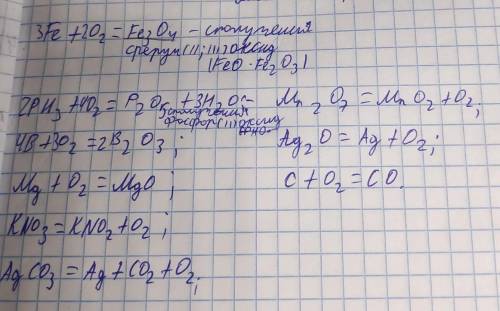 3Fe + 2O₂ = Fe₃O₄ - сполучення
ферум (II; III) оксид
(FeO · Fe₂O₃)
2PH₃ + 4O₂ = P₂O₅ + 3H₂O -
сполучення
фосфор оксид
4B + 3O₂ = 2B₂O₃ ;
Mg + O₂ = MgO ;
KNO₃ = KNO₂ + O₂ ;
AgCO₃ = Ag + CO₂ + O₂ ;
Mn₂O₇ = MnO₂ + O₂ ;
Ag₂O = Ag + O₂ ;
C + O₂ = CO.